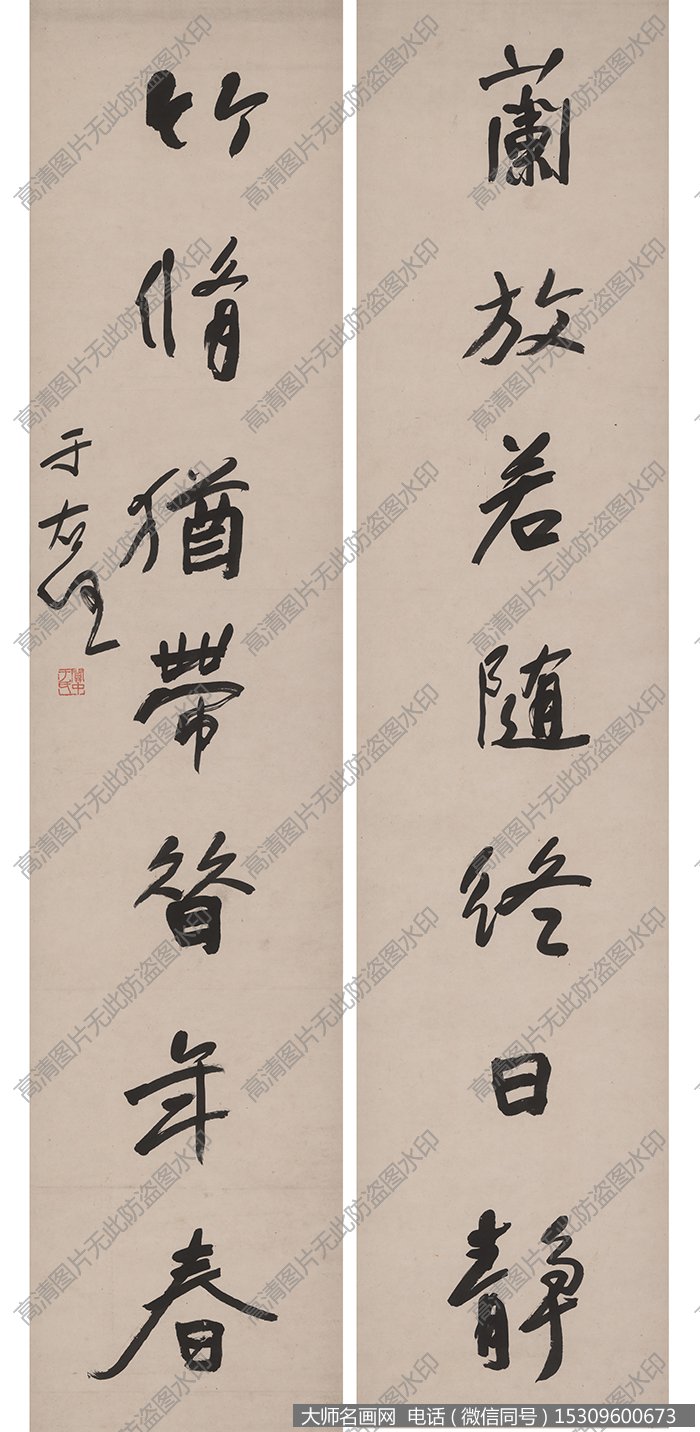 蘭放若随終日靜
竹脩猶帶昔年春
于右任
關中于氏
高清图片无此防盗图水印
大师名画网 电话（微信同号）15309600673